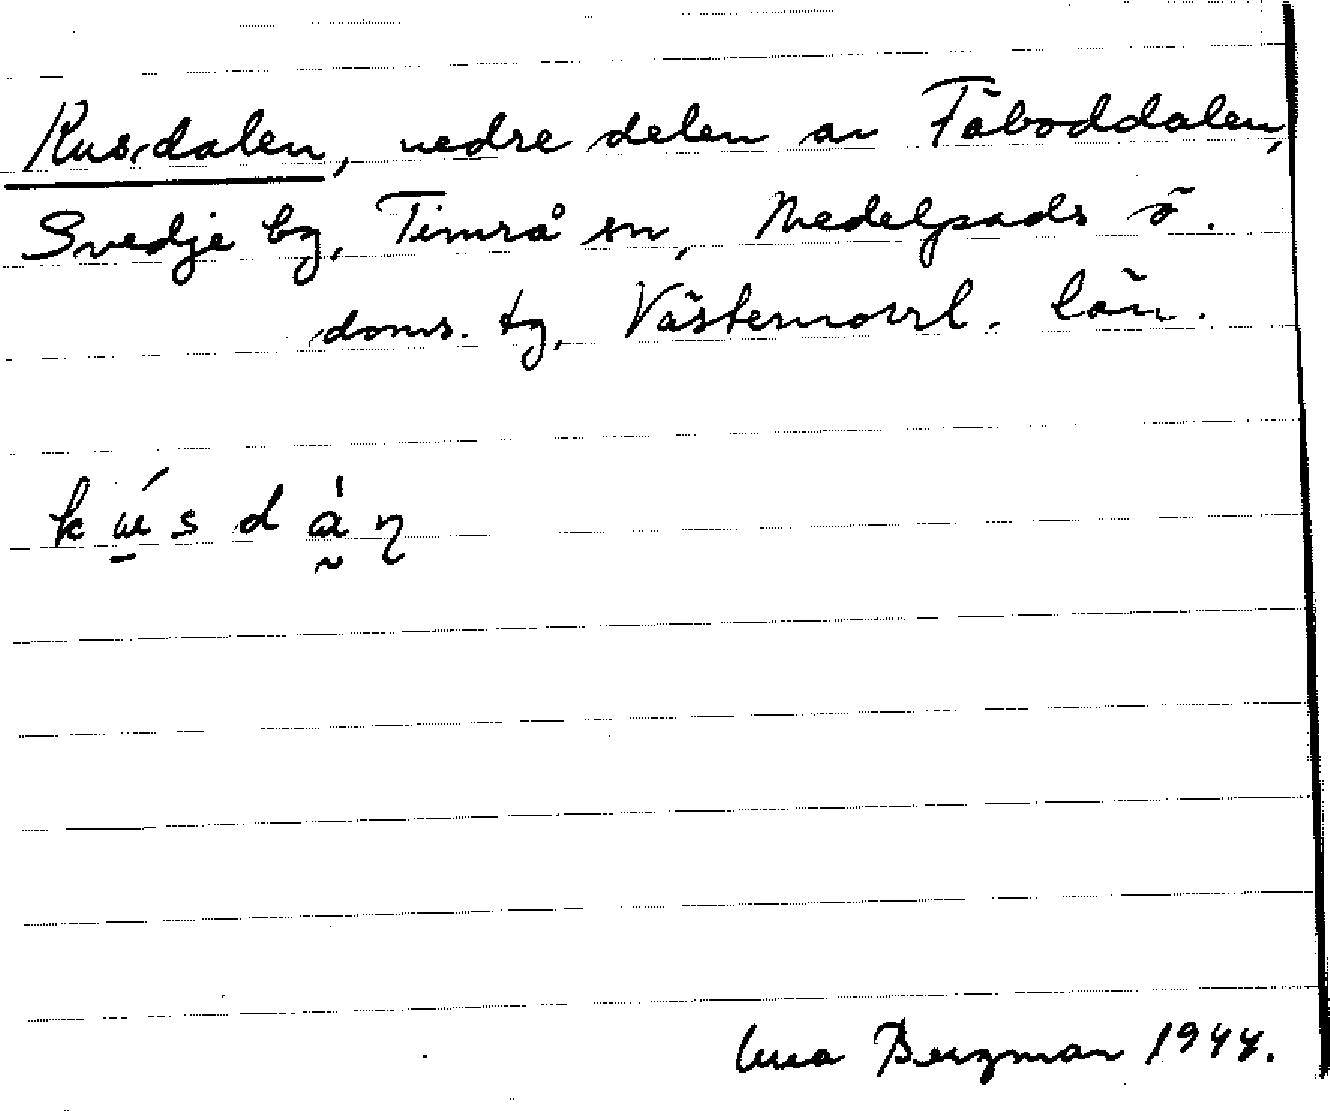 Kusdalen, nedre delen av Fäboddalen,
Svedje by, Timrå sn, Medelpads ö.
doms. tg, Västernorrl. län.
k ɯ̱́ s d a̰̍ ɳ
Bergman 1944.